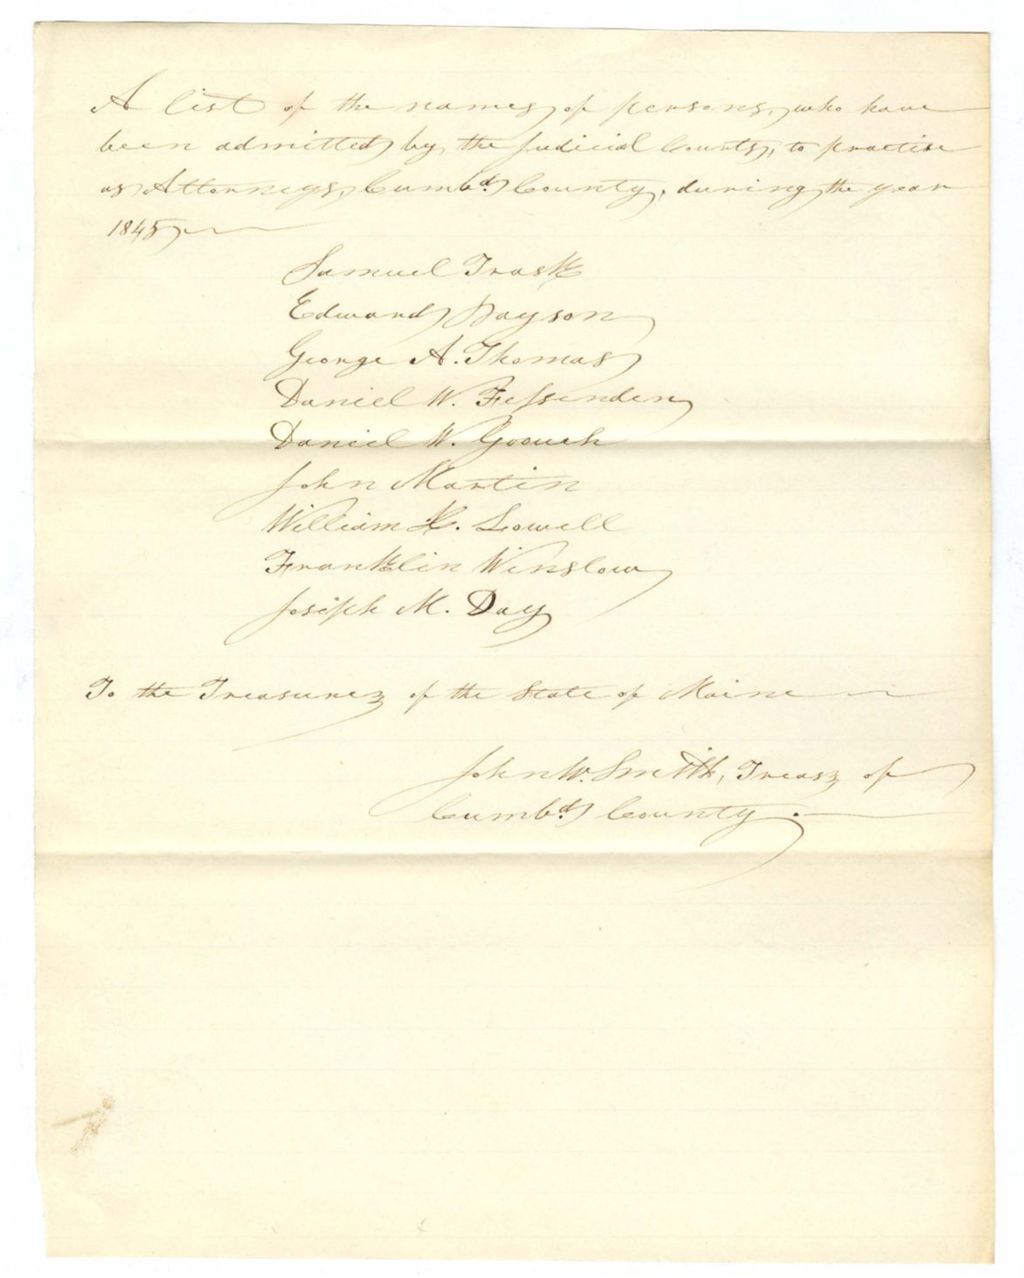 A list of the names of persons, who have
been admitted by the Judicial Courts, to practise
as Attorneys, Cumbd. County, during the year
1845
Samuel Trask
Edward Payson
George A. Thomas
Daniel W. Fessenden
Daniel W. Goouch
John Martin
William K. Lowell
Franklin Winslow
Joseph M. Day
To the Treasurer of the State of Maine
John W. Smith, Treasr of
Cumbd. County.